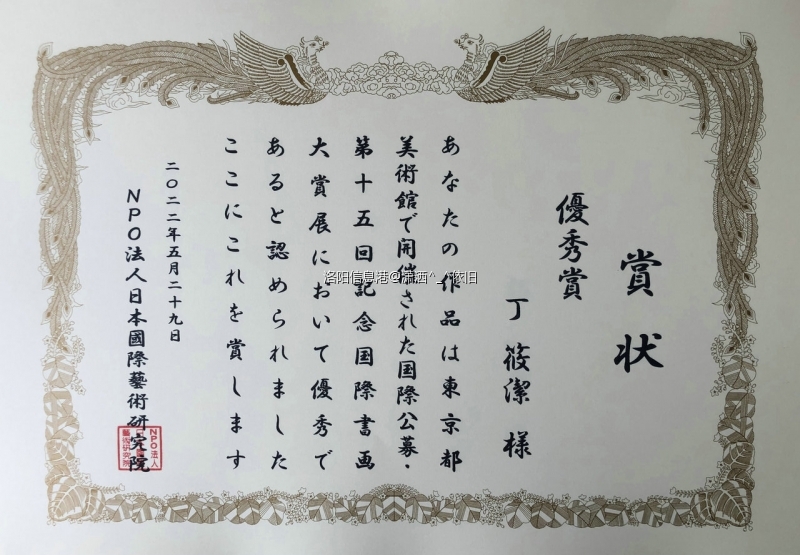 賞状
優秀賞
丁筱潔 様
あなたの作品は東京都
美術館で開催された国際公募・
第十五回記念国際書画
大賞展において優秀で
あると認められました
ここにこれを賞します
二〇二二年五月二十九日
NPO法人日本國際藝術研究院
NPO法人
藝術研究院
洛阳信息港@潇洒^_^依旧